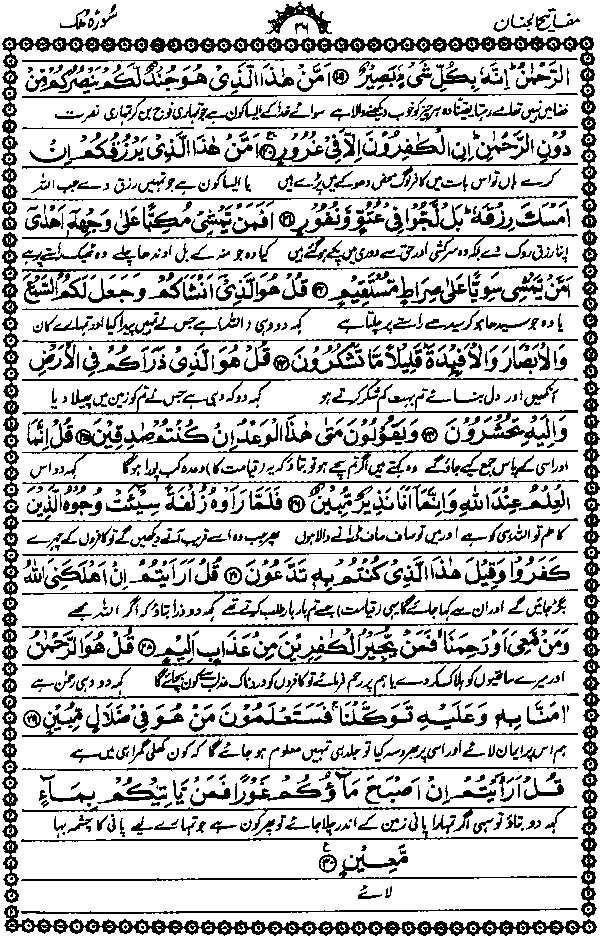 مفاتیح الجنان
۳۶
سُوْرَة مُلک
الرَّحْمٰنُ اِنَّهٗ بِكُلِّ شَیْءٍۭ بَصِیْرٌ ﴿۱۹﴾ اَمَّنْ هٰذَا الَّذِیْ هُوَ جُنْدٌ لَّكُمْ یَنْصُرُكُمْ مِّنْ
فضا میں نہیں تھامے رہتا یقینًا وہ ہر چیز کو خوب دیکھنے والا ہے سوائے خدا کے ایسا کون ہے جو تمہاری فوج بن کر تمہاری نصرت
دُوْنِ الرَّحْمٰنِ اِنِ الْكٰفِرُوْنَ اِلَّا فِیْ غُرُوْرٍ ﴿۲۰﴾ اَمَّنْ هٰذَا الَّذِیْ یَرْزُقُكُمْ اِنْ
کرے ہاں تو اس بات میں کافر لوگ محض دھوکے میں پڑے ہیں یا ایسا کون ہے جو تمہیں رزق دے جب اللہ
اَمْسَكَ رِزْقَهٗ بَلْ لَّجُّوْا فِیْ عُتُوٍّ وَّ نُفُوْرٍ ﴿۲۱﴾ اَفَمَنْ یَّمْشِیْ مُكِبًّا عَلٰی وَجْهِهٖۤ اَهْدٰۤی
اپنا رزق روک دے بلکہ وہ سرکشی اور حق سے دوری میں پکے ہو گئے ہیں کیا وہ جو منہ کے بل اوندھا چلے وہ ٹھیک راستے پر ہے
اَمَّنْ یَّمْشِیْ سَوِیًّا عَلٰی صِرَاطٍ مُّسْتَقِیْمٍ ﴿۲۲﴾ قُلْ هُوَ الَّذِیْۤ اَنْشَاَكُمْ وَ جَعَلَ لَكُمُ السَّمْعَ
یا وہ جو سیدھا ہو کر سیدھے راستے پر چلتا ہے کہہ دو وہی (اللہ) ہے جس نے تمہیں پیدا کیا اور تمہارے کان
وَ الْاَبْصَارَ وَ الْاَفْـِٕدَةَ قَلِیْلًا مَّا تَشْكُرُوْنَ ﴿۲۳﴾ قُلْ هُوَ الَّذِیْ ذَرَاَكُمْ فِی الْاَرْضِ
آنکھیں اور دل بنائے تم بہت کم شکر کرتے ہو کہہ دو کہ وہی ہے جس نے تم کو زمین میں پھیلا دیا
وَ اِلَیْهِ تُحْشَرُوْنَ ﴿۲۴﴾ وَ یَقُوْلُوْنَ مَتٰی هٰذَا الْوَعْدُ اِنْ كُنْتُمْ صٰدِقِیْنَ ﴿۲۵﴾ قُلْ اِنَّمَا
اور اسی کے پاس جمع کیے جاؤ گے وہ کہتے ہیں اگر تم سچے ہو تو بتاؤ کہ یہ (قیامت کا) وعدہ کب پورا ہو گا کہہ دو اس
الْعِلْمُ عِنْدَ اللّٰهِ وَ اِنَّمَاۤ اَنَا نَذِیْرٌ مُّبِیْنٌ ﴿۲۶﴾ فَلَمَّا رَاَوْهُ زُلْفَةً سِیْٓـَٔتْ وُجُوْهُ الَّذِیْنَ
کا علم تو اللہ ہی کو ہے اور میں تو صاف صاف ڈرانے والا ہوں پھر جب وہ اسے قریب آتے دیکھیں گے تو کافروں کے چہرے
كَفَرُوْا وَ قِیْلَ هٰذَا الَّذِیْ كُنْتُمْ بِهٖ تَدَّعُوْنَ ﴿۲۷﴾ قُلْ اَرَءَیْتُمْ اِنْ اَهْلَكَنِیَ اللّٰهُ
بگڑ جائیں گے اور ان سے کہا جائے گا یہی (قیامت) ہے جسے تم بار بار طلب کرتے تھے کہہ دو ذرا بتاؤ کہ اگر اللہ مجھے
وَ مَنْ مَّعِیَ اَوْ رَحِمَنَا فَمَنْ یُّجِیْرُ الْكٰفِرِیْنَ مِنْ عَذَابٍ اَلِیْمٍ ﴿۲۸﴾ قُلْ هُوَ الرَّحْمٰنُ
اور میرے ساتھیوں کو ہلاک کر دے یا ہم پر رحم فرمائے تو کافروں کو دردناک عذاب سے کون بچائے گا کہہ دو وہی رحمٰن ہے
اٰمَنَّا بِهٖ وَ عَلَیْهِ تَوَكَّلْنَا فَسَتَعْلَمُوْنَ مَنْ هُوَ فِیْ ضَلٰلٍ مُّبِیْنٍ ﴿۲۹﴾
ہم اس پر ایمان لائے اور اسی پر بھروسہ کیا تو جلد ہی تمہیں معلوم ہو جائے گا کہ کون کھلی گمراہی میں ہے
قُلْ اَرَءَیْتُمْ اِنْ اَصْبَحَ مَآؤُكُمْ غَوْرًا فَمَنْ یَّاْتِیْكُمْ بِمَآءٍ
کہہ دو بتاؤ تو سہی اگر تمہارا پانی زمین کے اندر چلا جائے تو پھر کون ہے جو تمہارے لیے پانی کا چشمہ بہا
مَّعِیْنٍ ﴿۳۰﴾
لائے